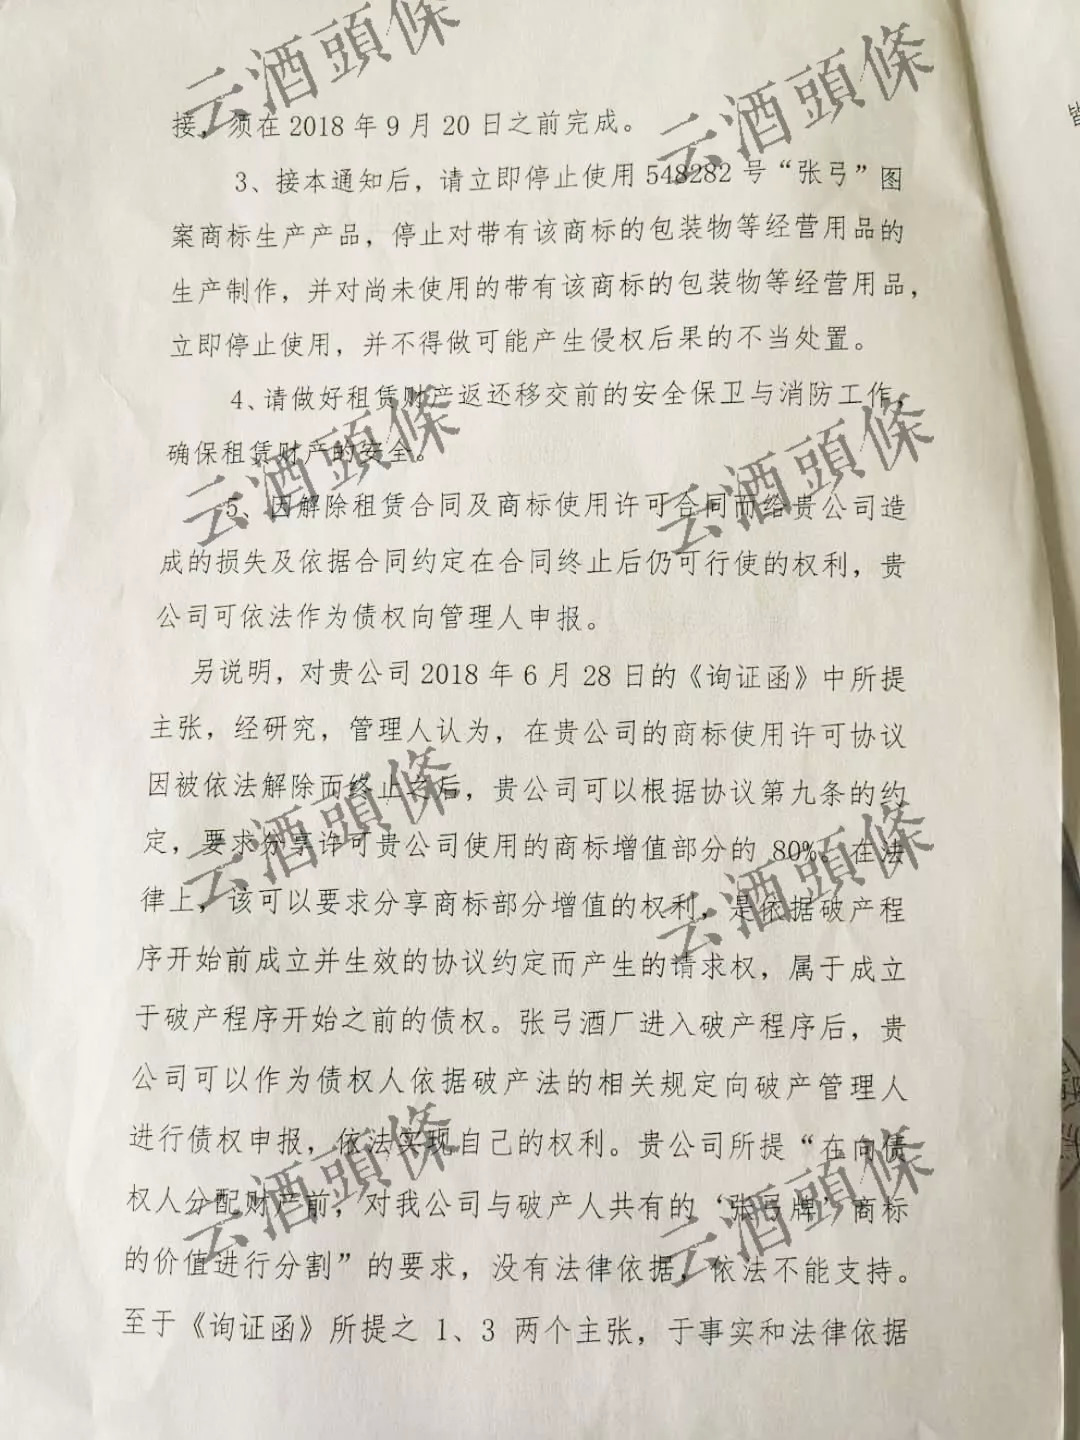 接，须在 2018 年 9 月 20 日之前完成。
3、接本通知后，请立即停止使用 548282 号“张弓”图
案商标生产产品，停止对带有该商标的包装物等经营用品的
生产制作，并对尚未使用的带有该商标的包装物等经营用品，
立即停止使用，并不得做可能产生侵权后果的不当处置。
4、请做好租赁财产返还移交前的安全保卫与消防工作，
确保租赁财产的安全。
5、因解除租赁合同及商标使用许可合同而给贵公司造
成的损失及依据合同约定在合同终止后仍可行使的权利，贵
公司可依法作为债权向管理人申报。
另说明，对贵公司 2018 年 6 月 28 日的《询证函》中所提
主张，经研究，管理人认为，在贵公司的商标使用许可协议
因被依法解除而终止之后，贵公司可以根据协议第九条的约
定，要求分享许可贵公司使用的商标增值部分的 80%。在法
律上，该可以要求分享商标部分增值的权利，是依据破产程
序开始前成立并生效的协议约定而产生的请求权，属于成立
于破产程序开始之前的债权。张弓酒厂进入破产程序后，贵
公司可以作为债权人依据破产法的相关规定向破产管理人
进行债权申报，依法实现自己的权利。贵公司所提“在向债
权人分配财产前，对我公司与破产人共有的‘张弓牌’商标
的价值进行分割”的要求，没有法律依据，依法不能支持。
至于《询证函》所提之 1、3 两个主张，于事实和法律依据
云酒頭條
云酒頭條
云酒頭條
云酒頭條
云酒頭條
云酒頭條
云酒頭條
云酒頭條